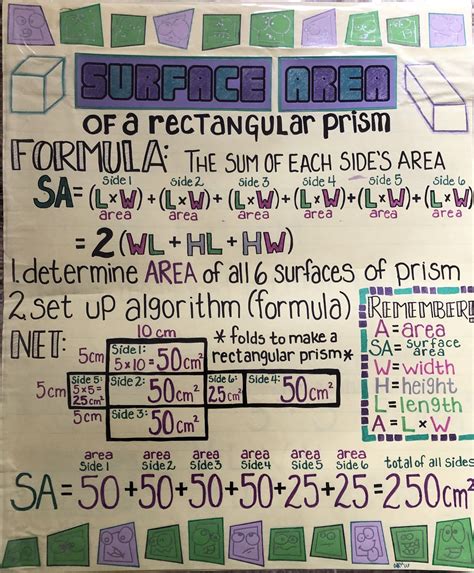 SURFACE AREA
OF a rectangular prism
FORMULA: THE SUM OF EACH SIDE'S AREA
side 1 side 2 side 3 side 4 side 5 side 6
SA=(LxW)+(LxW)+(LxW)+(LxW)+(LxW)+(LxW)
area area area area area area
=2(WL+HL+HW)
1. determine AREA of all 6 surfaces of prism
2. set up algorithm (formula)
NET:
10 cm
5cm
Side 1:
5x10=50cm²
* folds to make a
rectangular prism *
5cm
Side 5:
5x5=
25cm²
Side 2:
50cm²
Side 6:
25cm²
Side 4:
50cm²
5cm
Side 3:
50cm²
REMEMBER!
A=area
SA=surface
area
W=width
H=height
L=length
A=LxW
area area area area area area
side 1 side 2 side 3 side 4 side 5 side 6 total of all sides
SA=50+50+50+50+25+25=250cm²